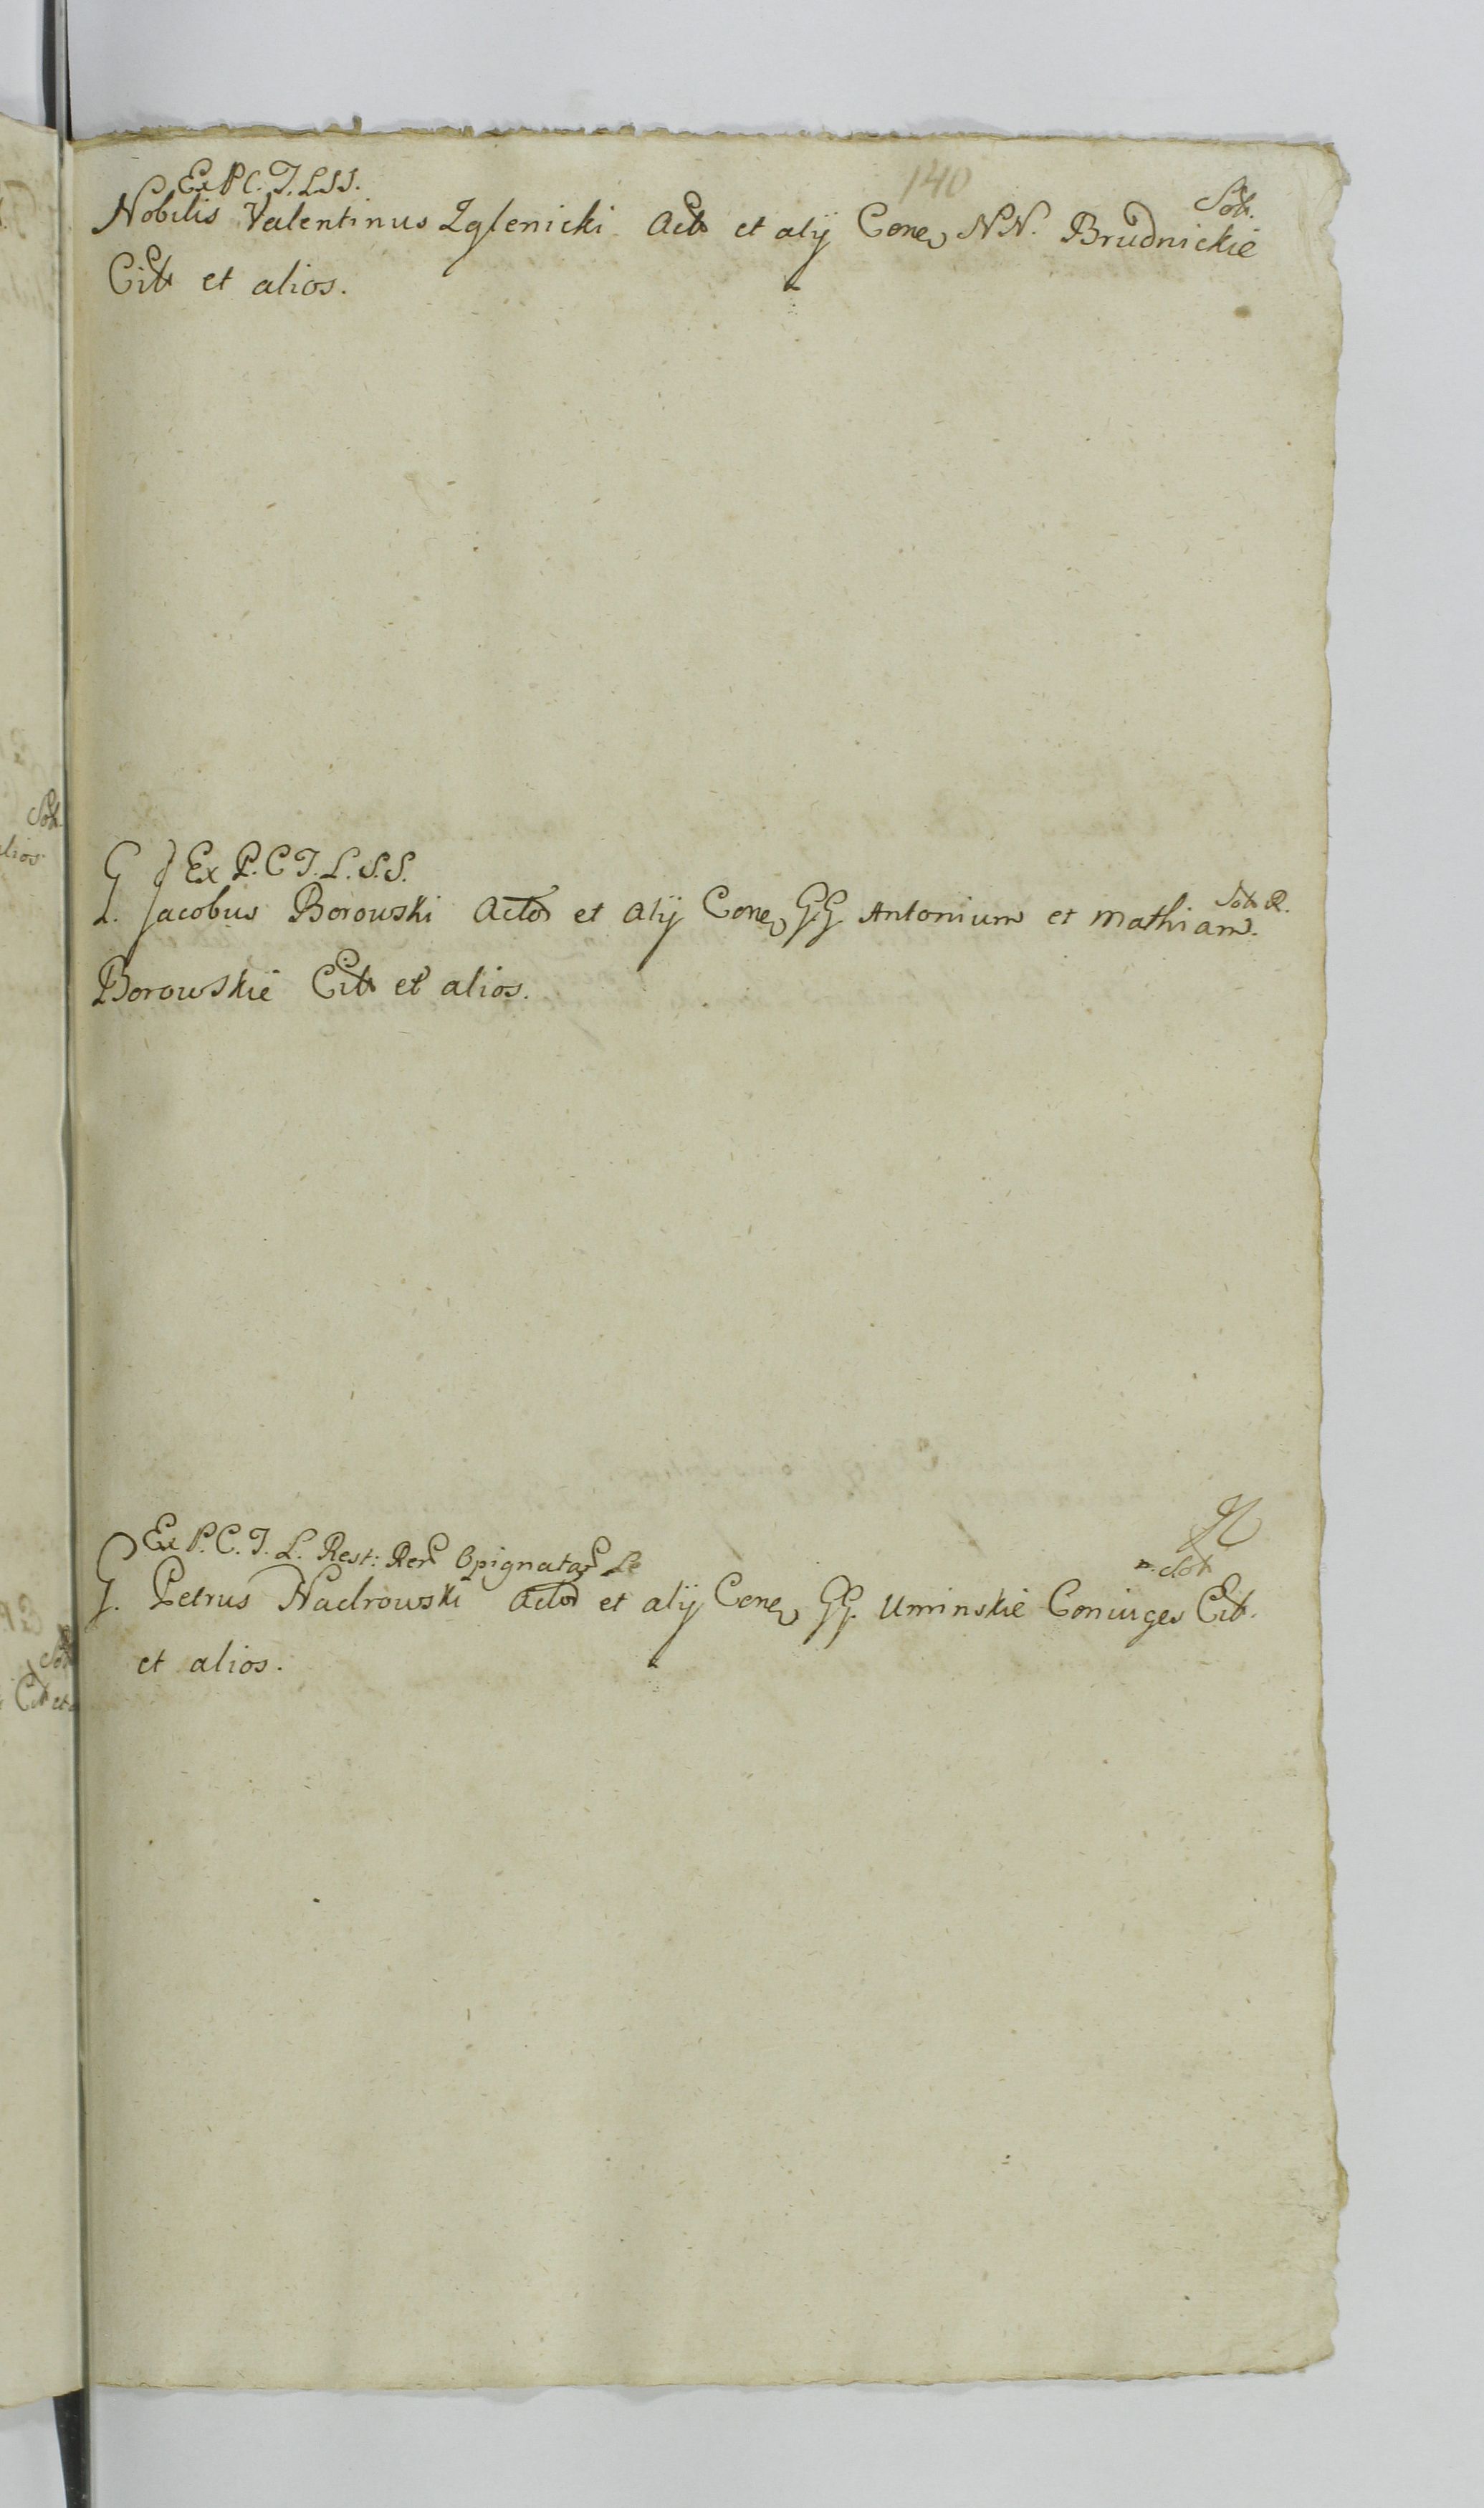 140
Ex P C. T. L S S.
Solt.
Nobilis Valentinus Zglenicki Act et alij Conē NN. Brudnickie
Citt et alios.
Ex P. C T. L. S. S.
G. Jacobus Borowski Actor et alij Conē GG Antonium et Mathiam
Borowskie Citt et alios.
Ex P. C. T. L. Rest: Rerͫ Opignatarͫ
G. Petrus Nadrowski Actor et alij Conē GG. Uminskie Coniuges Citt.
et alios.